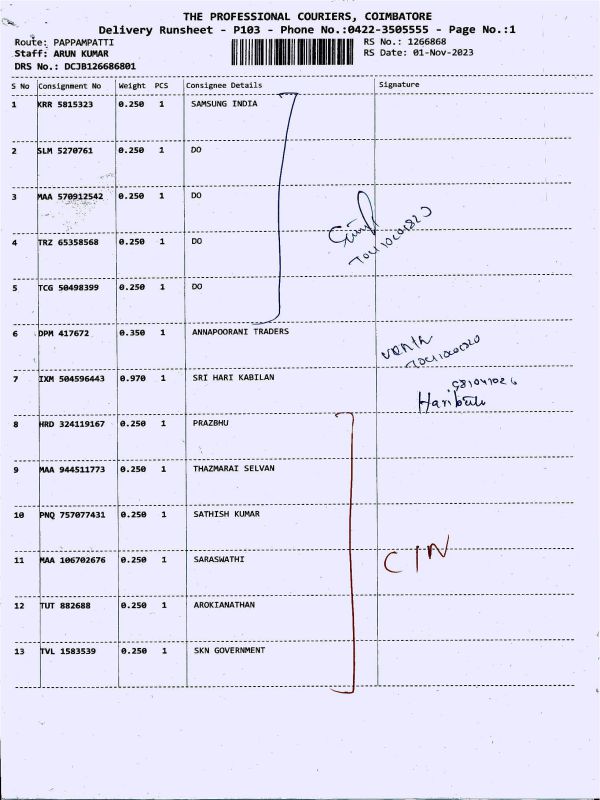 THE PROFESSIONAL COURIERS, COIMBATORE
Delivery Runsheet - P103 - Phone No.:0422-3505555 - Page No.:1
Route: PAPPAMPATTI RS No.: 1266868
Staff: ARUN KUMAR RS Date: 01-Nov-2023
DRS No.: DCJB126686801
S No Consignment No Weight PCS Consignee Details Signature
1 KRR 5815323 0.250 1 SAMSUNG INDIA
2 SLM 5270761 0.250 1 DO
3 MAA 570912542 0.250 1 DO
4 TRZ 65358568 0.250 1 DO
5 TCG 50498399 0.250 1 DO
6 DPM 417672 0.350 1 ANNAPOORANI TRADERS
7 IXM 504596443 0.970 1 SRI HARI KABILAN
8 HRD 324119167 0.250 1 PRAZBHU
9 MAA 944511773 0.250 1 THAZMARAI SELVAN
10 PNQ 757077431 0.250 1 SATHISH KUMAR
11 MAA 106702676 0.250 1 SARASWATHI
CIN
12 TUT 882688 0.250 1 AROKIANATHAN
13 TVL 1583539 0.250 1 SKN GOVERNMENT